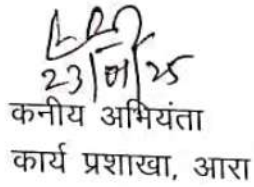 23/01/25
कनीय अभियंता
कार्य प्रशाखा, आरा